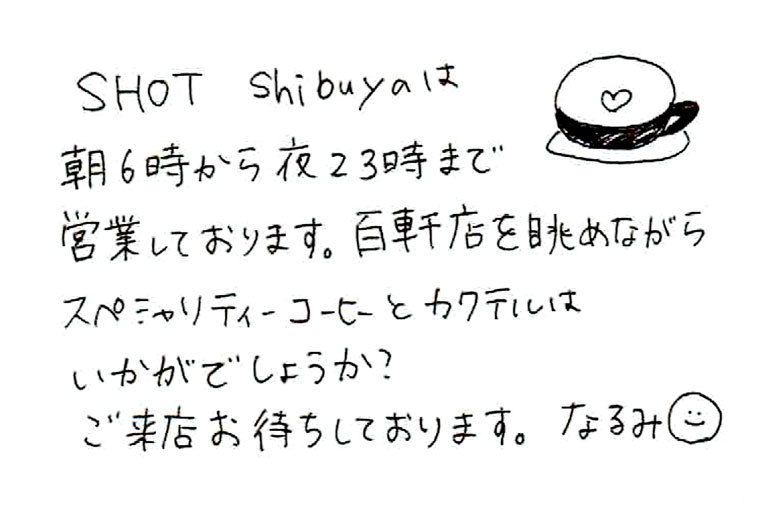 SHOT Shibuyaは
朝6時から夜23時まで
営業しております。百軒店を眺めながら
スペシャリティーコーヒーとカクテルは
いかがでしょうか?
ご来店お待ちしております。なるみ